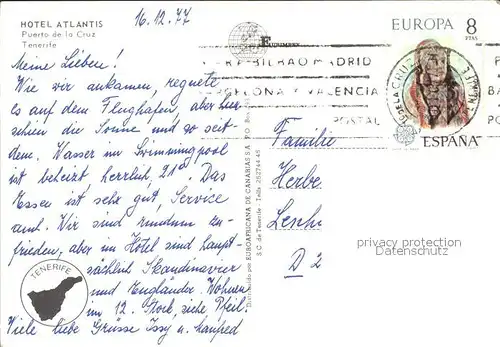 HOTEL ATLANTIS
Puerto de la Cruz
Tenerife
16.12.77
Meine Lieben!
Wie wir ankamen, regnete
es auf dem Flughafen, aber hier
schien die Sonne und so seit-
dem. Wasser im Swimmingpool
ist beheizt herrlich, 21°. Das
Essen ist sehr gut, Service
auch. Wir sind rundum zu-
frieden, aber im Hotel sind haupt-
sächlich Skandinavier
und Engländer. Wohnen
im 12. Stock, siehe Pfeil!
Viele liebe Grüsse Issy u. Manfred
TENERIFE
Distribuido por EUROAFRICANA DE CANARIAS S.A.
S.C. de Tenerife - Telfs. 252744-45
EUROPA 8
PTAS
ESPAÑA
BILBAO MADRID
Y VALENCIA
POSTAL
Familie
Herbe.
D 2
privacy protection
Datenschutz